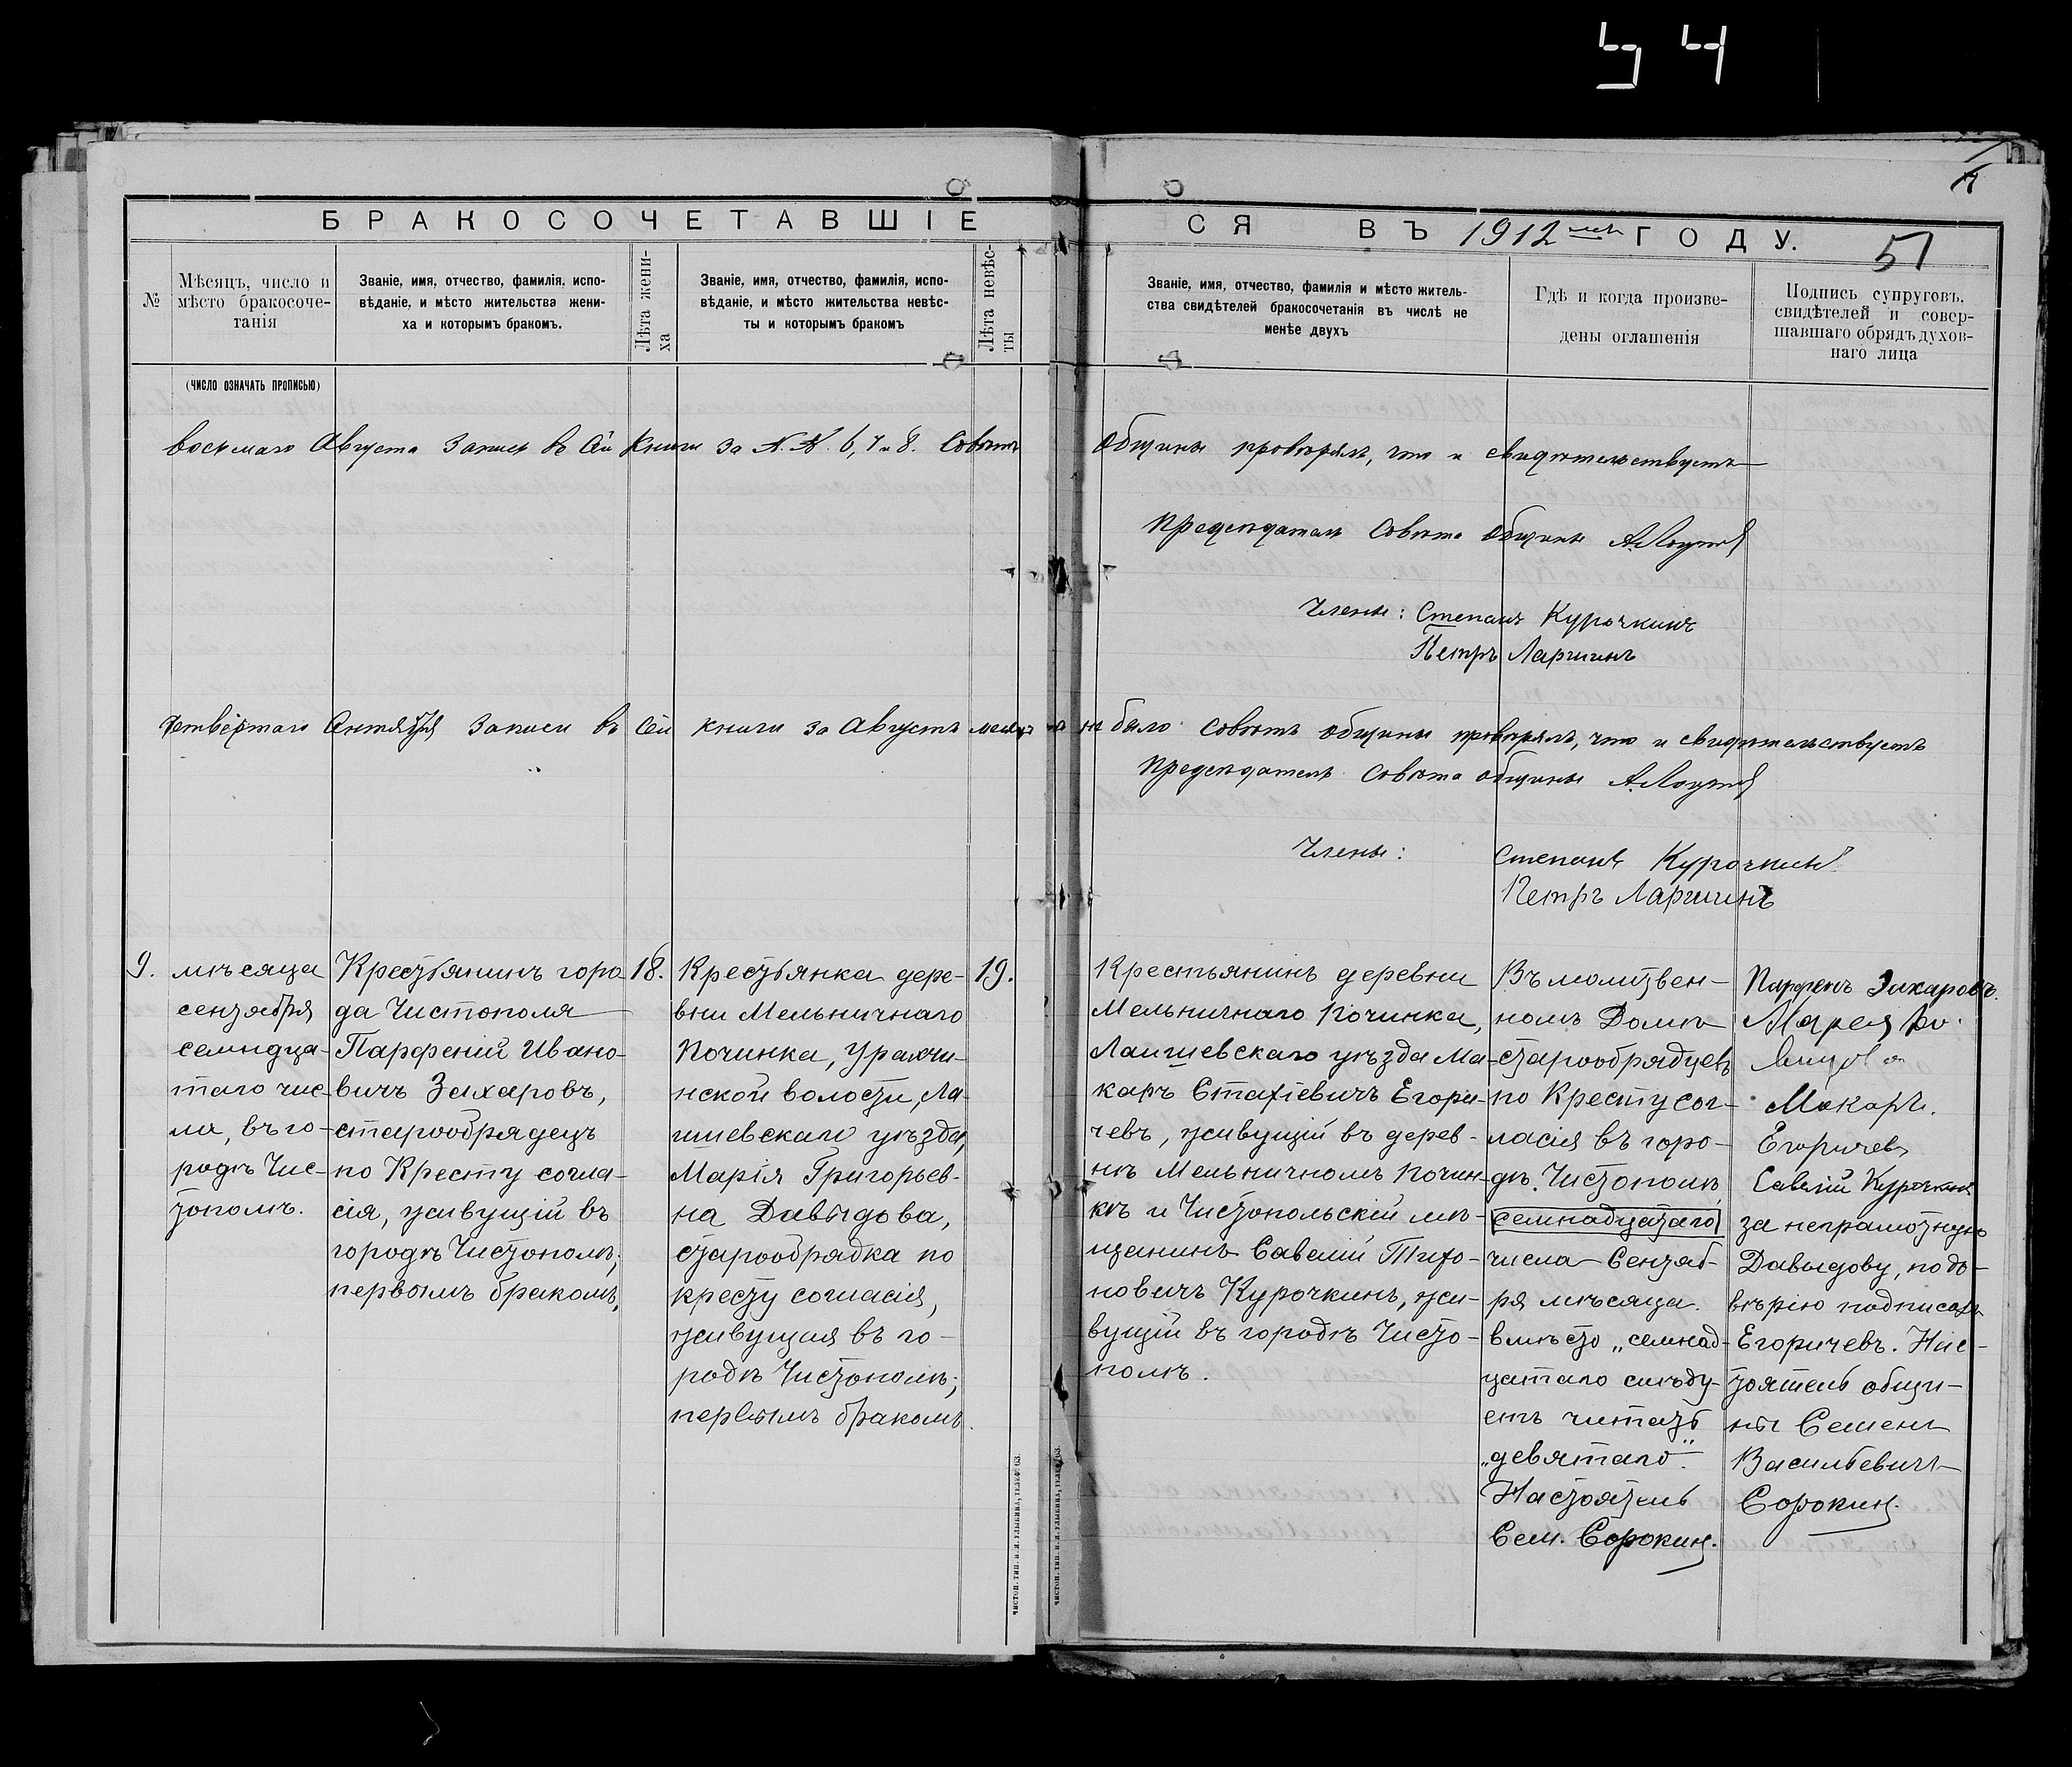 34
БРАКОСОЧЕТАВШІЕСЯ ВЪ 1912 ГОДУ.
51
№
Мѣсяцъ, число и
мѣсто бракосоче-
танія
Званіе, имя, отчество, фамилія, испо-
вѣданіе, и мѣсто жительства жени-
ха и которымъ бракомъ.
Лѣта жени-
ха
Званіе, имя, отчество, фамилія, испо-
вѣданіе, и мѣсто жительства невѣс-
ты и которымъ бракомъ
Лѣта невѣс-
ты
Званіе, имя, отчество, фамилія и мѣсто житель-
ства свидѣтелей бракосочетанія въ числѣ не
менѣе двухъ
Гдѣ и когда произве-
дены оглашенія
Подпись супруговъ,
свидѣтелей и совер-
шавшаго обрядъ духов-
наго лица
(ЧИСЛО ОЗНАЧАТЬ ПРОПИСЬЮ)
восьмаго Августа Записи въ Сей Книги за N.N. 6, 7 и 8. Совѣтъ Общины провѣрялъ, что и свидѣтельствуетъ
Предсѣдатель Совѣта Общины
Члены: Степанъ Курочкинъ
Петръ Ларшинъ
Четвёртаго Сентября Записи въ Сей книги за Августъ месяцъ не было Совѣтъ общины провѣрялъ, что и свидѣтельствуетъ
Предсѣдатель Совѣта общины
Члены: Степанъ Курочкинъ
Петръ Ларшинъ
9.
мѣсяца
сентября
семндца-
таго чис-
ла, въ го-
родѣ Чис-
тополѣ.
Крестьянинъ горо-
да Чистополя
Парфеній Ивано-
вичъ Захаровъ,
старообрядецъ
по Кресту согла-
сія, живущій въ
городѣ Чистополѣ;
первымъ бракомъ,
18.
Крестьянка дере-
вни Мельничнаго
Починка, Урахчи-
нской волости, Ла-
ишевскаго уѣзда,
Марія Григорьев-
на Давыдова,
старообрядка по
кресту согласія,
живущая въ го-
родѣ Чистополѣ;
первымъ бракомъ.
19.
Крестьянинъ деревни
Мельничнаго Починка,
Лаишевскаго уѣзда Ма-
каръ Стахіевичъ Егори-
чевъ, живущій въ дерев-
нѣ Мельничномъ Почин-
кѣ и Чистопольскій мѣ-
щанинъ Савелій Тихо-
новичъ Курочкинъ, жи-
вущій въ городѣ Чисто-
полѣ.
Въ молитвен-
номъ Домѣ
старообрядцевъ
по Кресту сог-
ласія въ горо-
дѣ Чистополѣ
семнадцатаго
числа Сентяб-
ря мѣсяца.
вмѣсто „семнад-
цатаго слѣду-
етъ читать
„девятаго“.
Настоятель
Сем. Сорокин.
Парфенъ Захаровъ.
Макаръ.
Егоричев
Савелій Курочкин
за неграмотную
Давыдову, по до-
вѣрію подписалъ
Егоричевъ. Нас-
тоятель общи-
ны Семенъ
Васильевичъ
Сорокин.
ЧИСТОП. ТИП. И. Я. УЛЫБИНА, ТЕЛЕФ. 63.
ЧИСТОП. ТИП. И. Я. УЛЫБИНА, ТЕЛЕФ. 63.